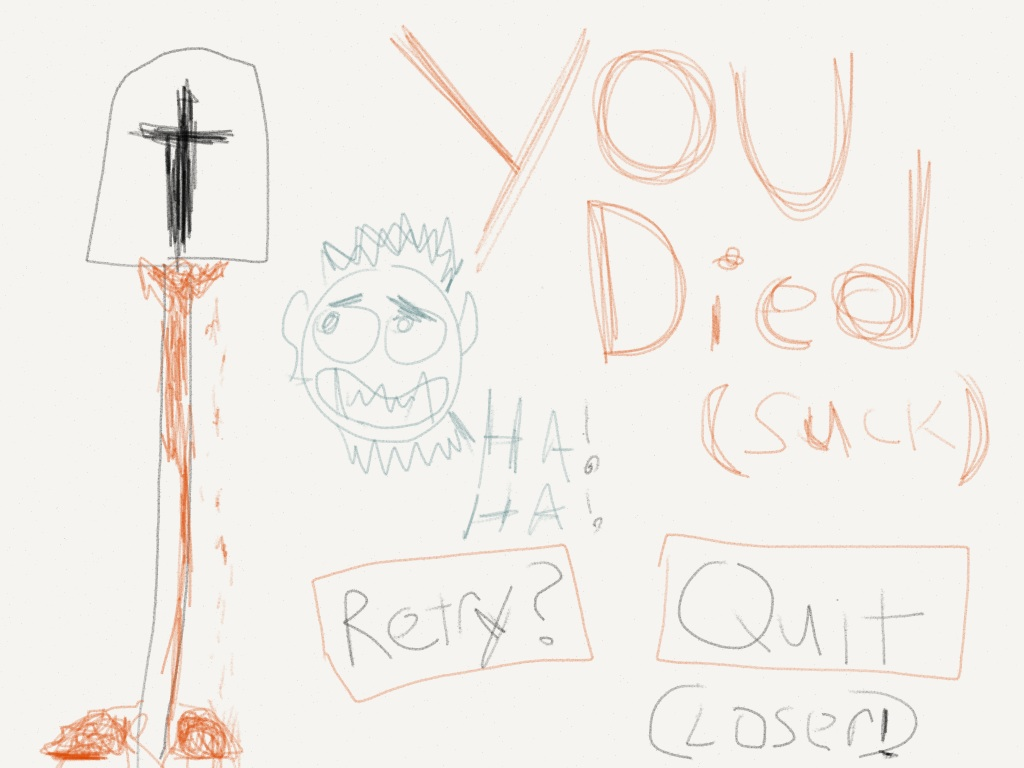 YOU
Died
(SUCK)
HA!
HA!
Retry? Quit
(Loser!)